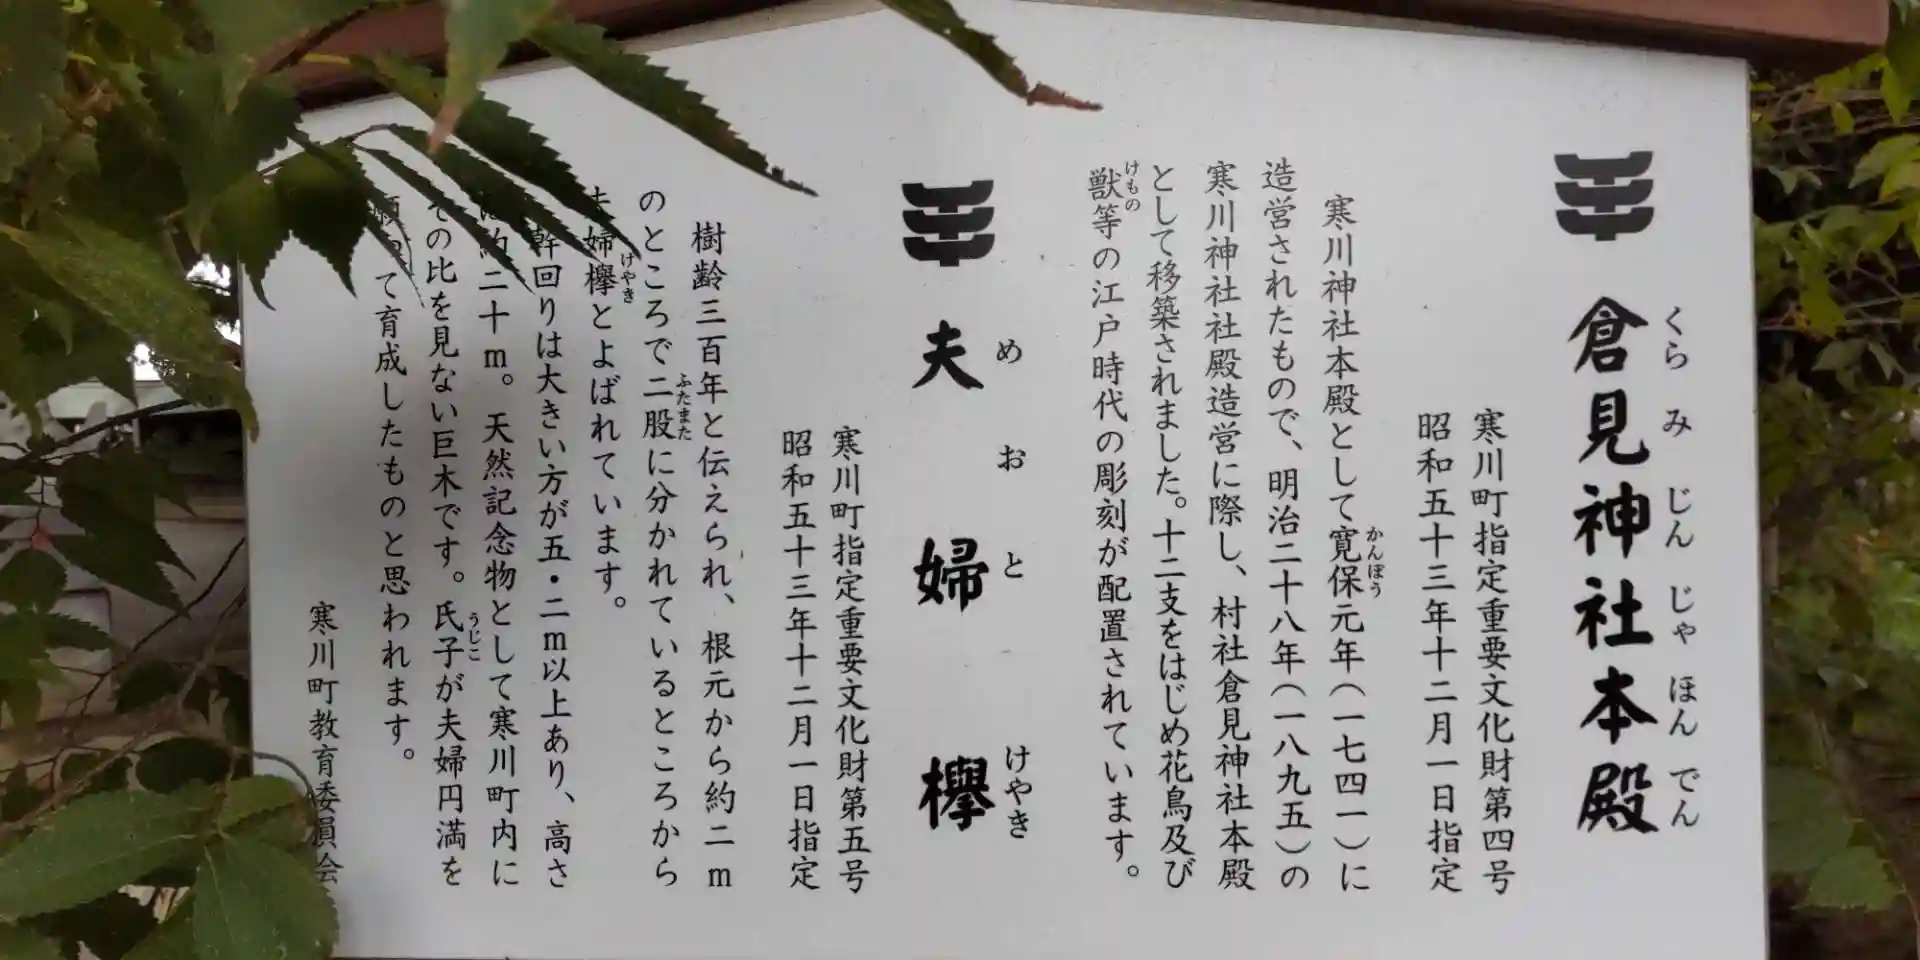 倉見神社本殿
くらみじんじゃほんでん
寒川町指定重要文化財第四号
昭和五十三年十二月一日指定
寒川神社本殿として寛保元年(一七四一)に
かんぽう
造営されたもので、明治二十八年(一八九五)の
寒川神社社殿造営に際し、村社倉見神社本殿
として移築されました。十二支をはじめ花鳥及び
獣等の江戸時代の彫刻が配置されています。
けもの
夫婦欅
めおとけやき
寒川町指定重要文化財第五号
昭和五十三年十二月一日指定
樹齢三百年と伝えられ、根元から約二m
のところで二股に分かれているところから
ふたまた
夫婦欅とよばれています。
けやき
幹回りは大きい方が五・二m以上あり、高さ
二十m。天然記念物として寒川町内に
その比を見ない巨木です。氏子が夫婦円満を
うじこ
願って育成したものと思われます。
寒川町教育委員会